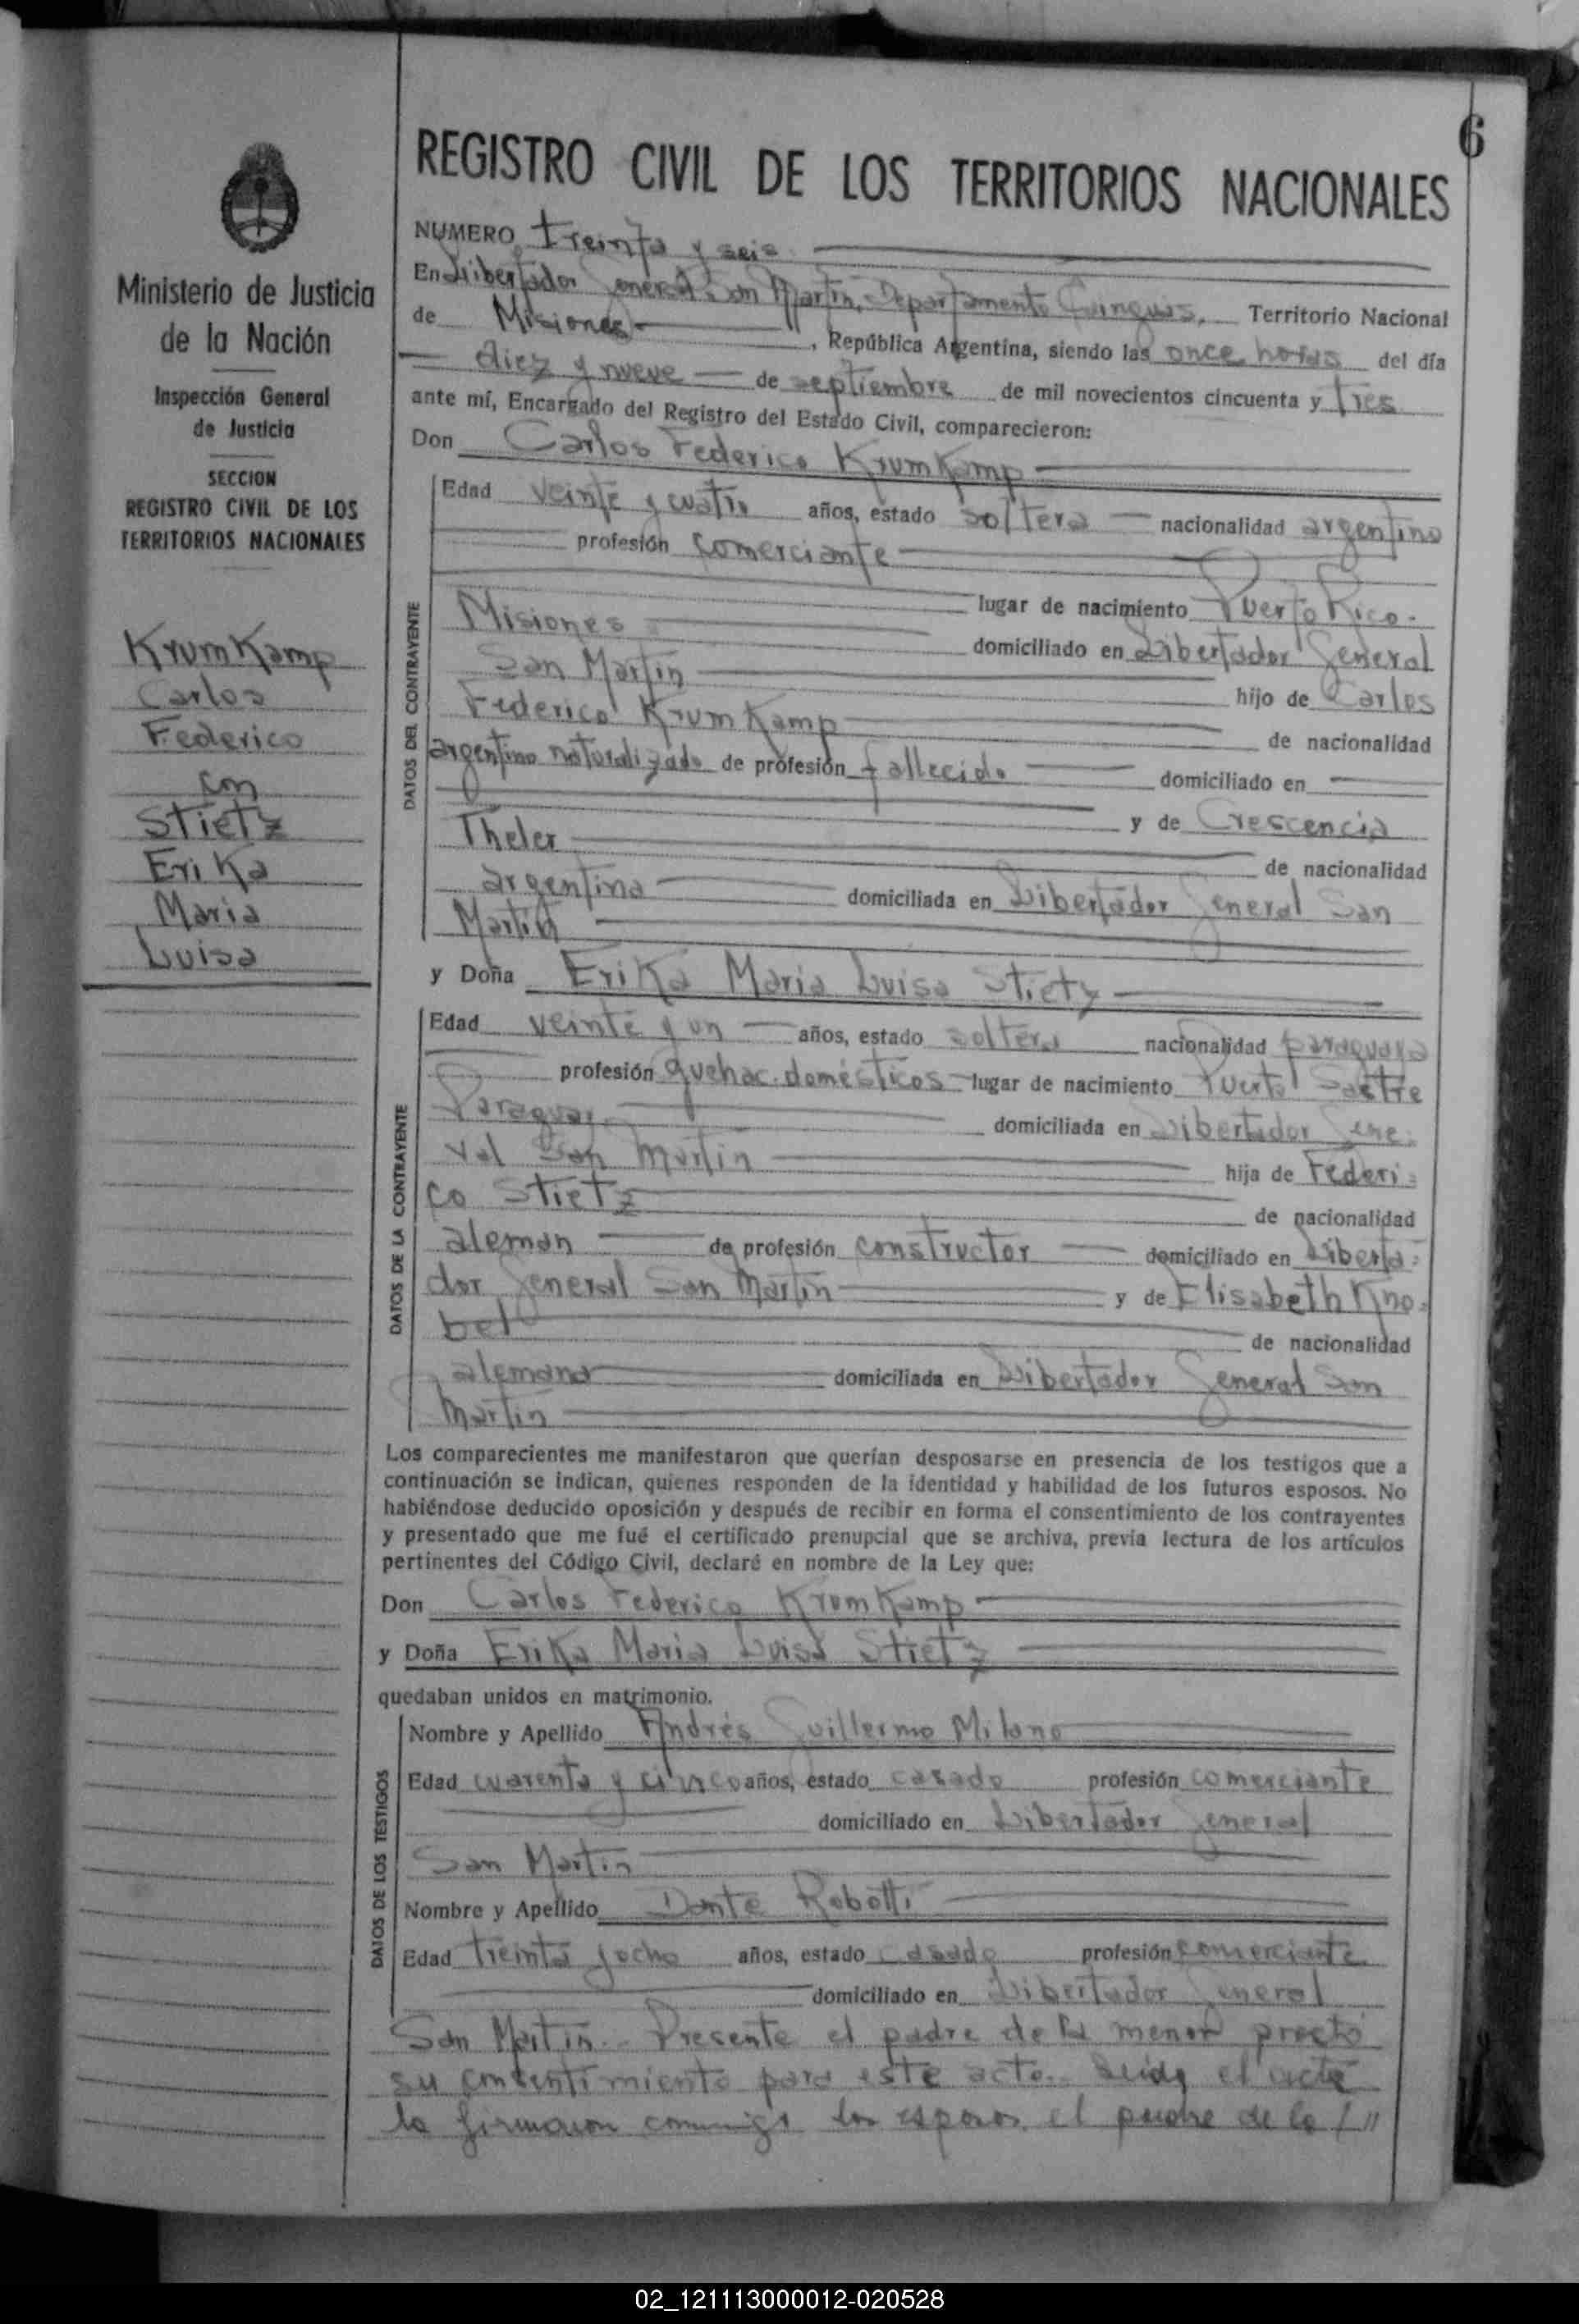 6
REGISTRO CIVIL DE LOS TERRITORIOS NACIONALES
Ministerio de Justicia
de la Nación
Inspección General
de Justicia
SECCION
REGISTRO CIVIL DE LOS
TERRITORIOS NACIONALES
KrumKamp
Carlos
Federico
con
Stietz
EriKa
Maria
Luisa
NUMERO treinta y seis
En Libertador General San Martín, Departamento Cainguas, Territorio Nacional
de Misiones, República Argentina, siendo las once horas del día
diez y nueve de septiembre de mil novecientos cincuenta y tres
ante mí, Encargado del Registro del Estado Civil, comparecieron:
Don Carlos Federico KrumKamp
DATOS DEL CONTRAYENTE
Edad veinte y cuatro años, estado soltero nacionalidad argentino
profesión comerciante
lugar de nacimiento Puerto Rico.
Misiones domiciliado en Libertador General
San Martin hijo de Carlos
Federico KrumKamp de nacionalidad
argentino naturalizado de profesión fallecido domiciliado en
y de Crescencia
Theler de nacionalidad
argentina domiciliada en Libertador General San
Martin
y Doña EriKa Maria Luisa Stietz
DATOS DE LA CONTRAYENTE
Edad veinte y un años, estado soltera nacionalidad paraguaya
profesión quehac. domésticos lugar de nacimiento Puerto Sastre
Paraguay domiciliada en Libertador Gene-
ral San Martin hija de Federi-
co Stietz de nacionalidad
aleman de profesión constructor domiciliado en Liberta-
dor General San Martin y de Elisabeth Kno-
bel de nacionalidad
alemana domiciliada en Libertador General San
Martin
Los comparecientes me manifestaron que querían desposarse en presencia de los testigos que a
continuación se indican, quienes responden de la identidad y habilidad de los futuros esposos. No
habiéndose deducido oposición y después de recibir en forma el consentimiento de los contrayentes
y presentado que me fué el certificado prenupcial que se archiva, previa lectura de los artículos
pertinentes del Código Civil, declaré en nombre de la Ley que:
Don Carlos Federico KrumKamp
y Doña EriKa Maria Luisa Stietz
quedaban unidos en matrimonio.
DATOS DE LOS TESTIGOS
Nombre y Apellido Andrés Guillermo Milano
Edad cuarenta y cinco años, estado casado profesión comerciante
domiciliado en Libertador General
San Martin
Nombre y Apellido Dante Robotti
Edad treinta y ocho años, estado casado profesión comerciante
domiciliado en Libertador General
San Martin. Presente el padre de la menor prestó
su consentimiento para este acto. Leida el acta
la firmaron conmigo los esposos, el padre de la
02_121113000012-020528